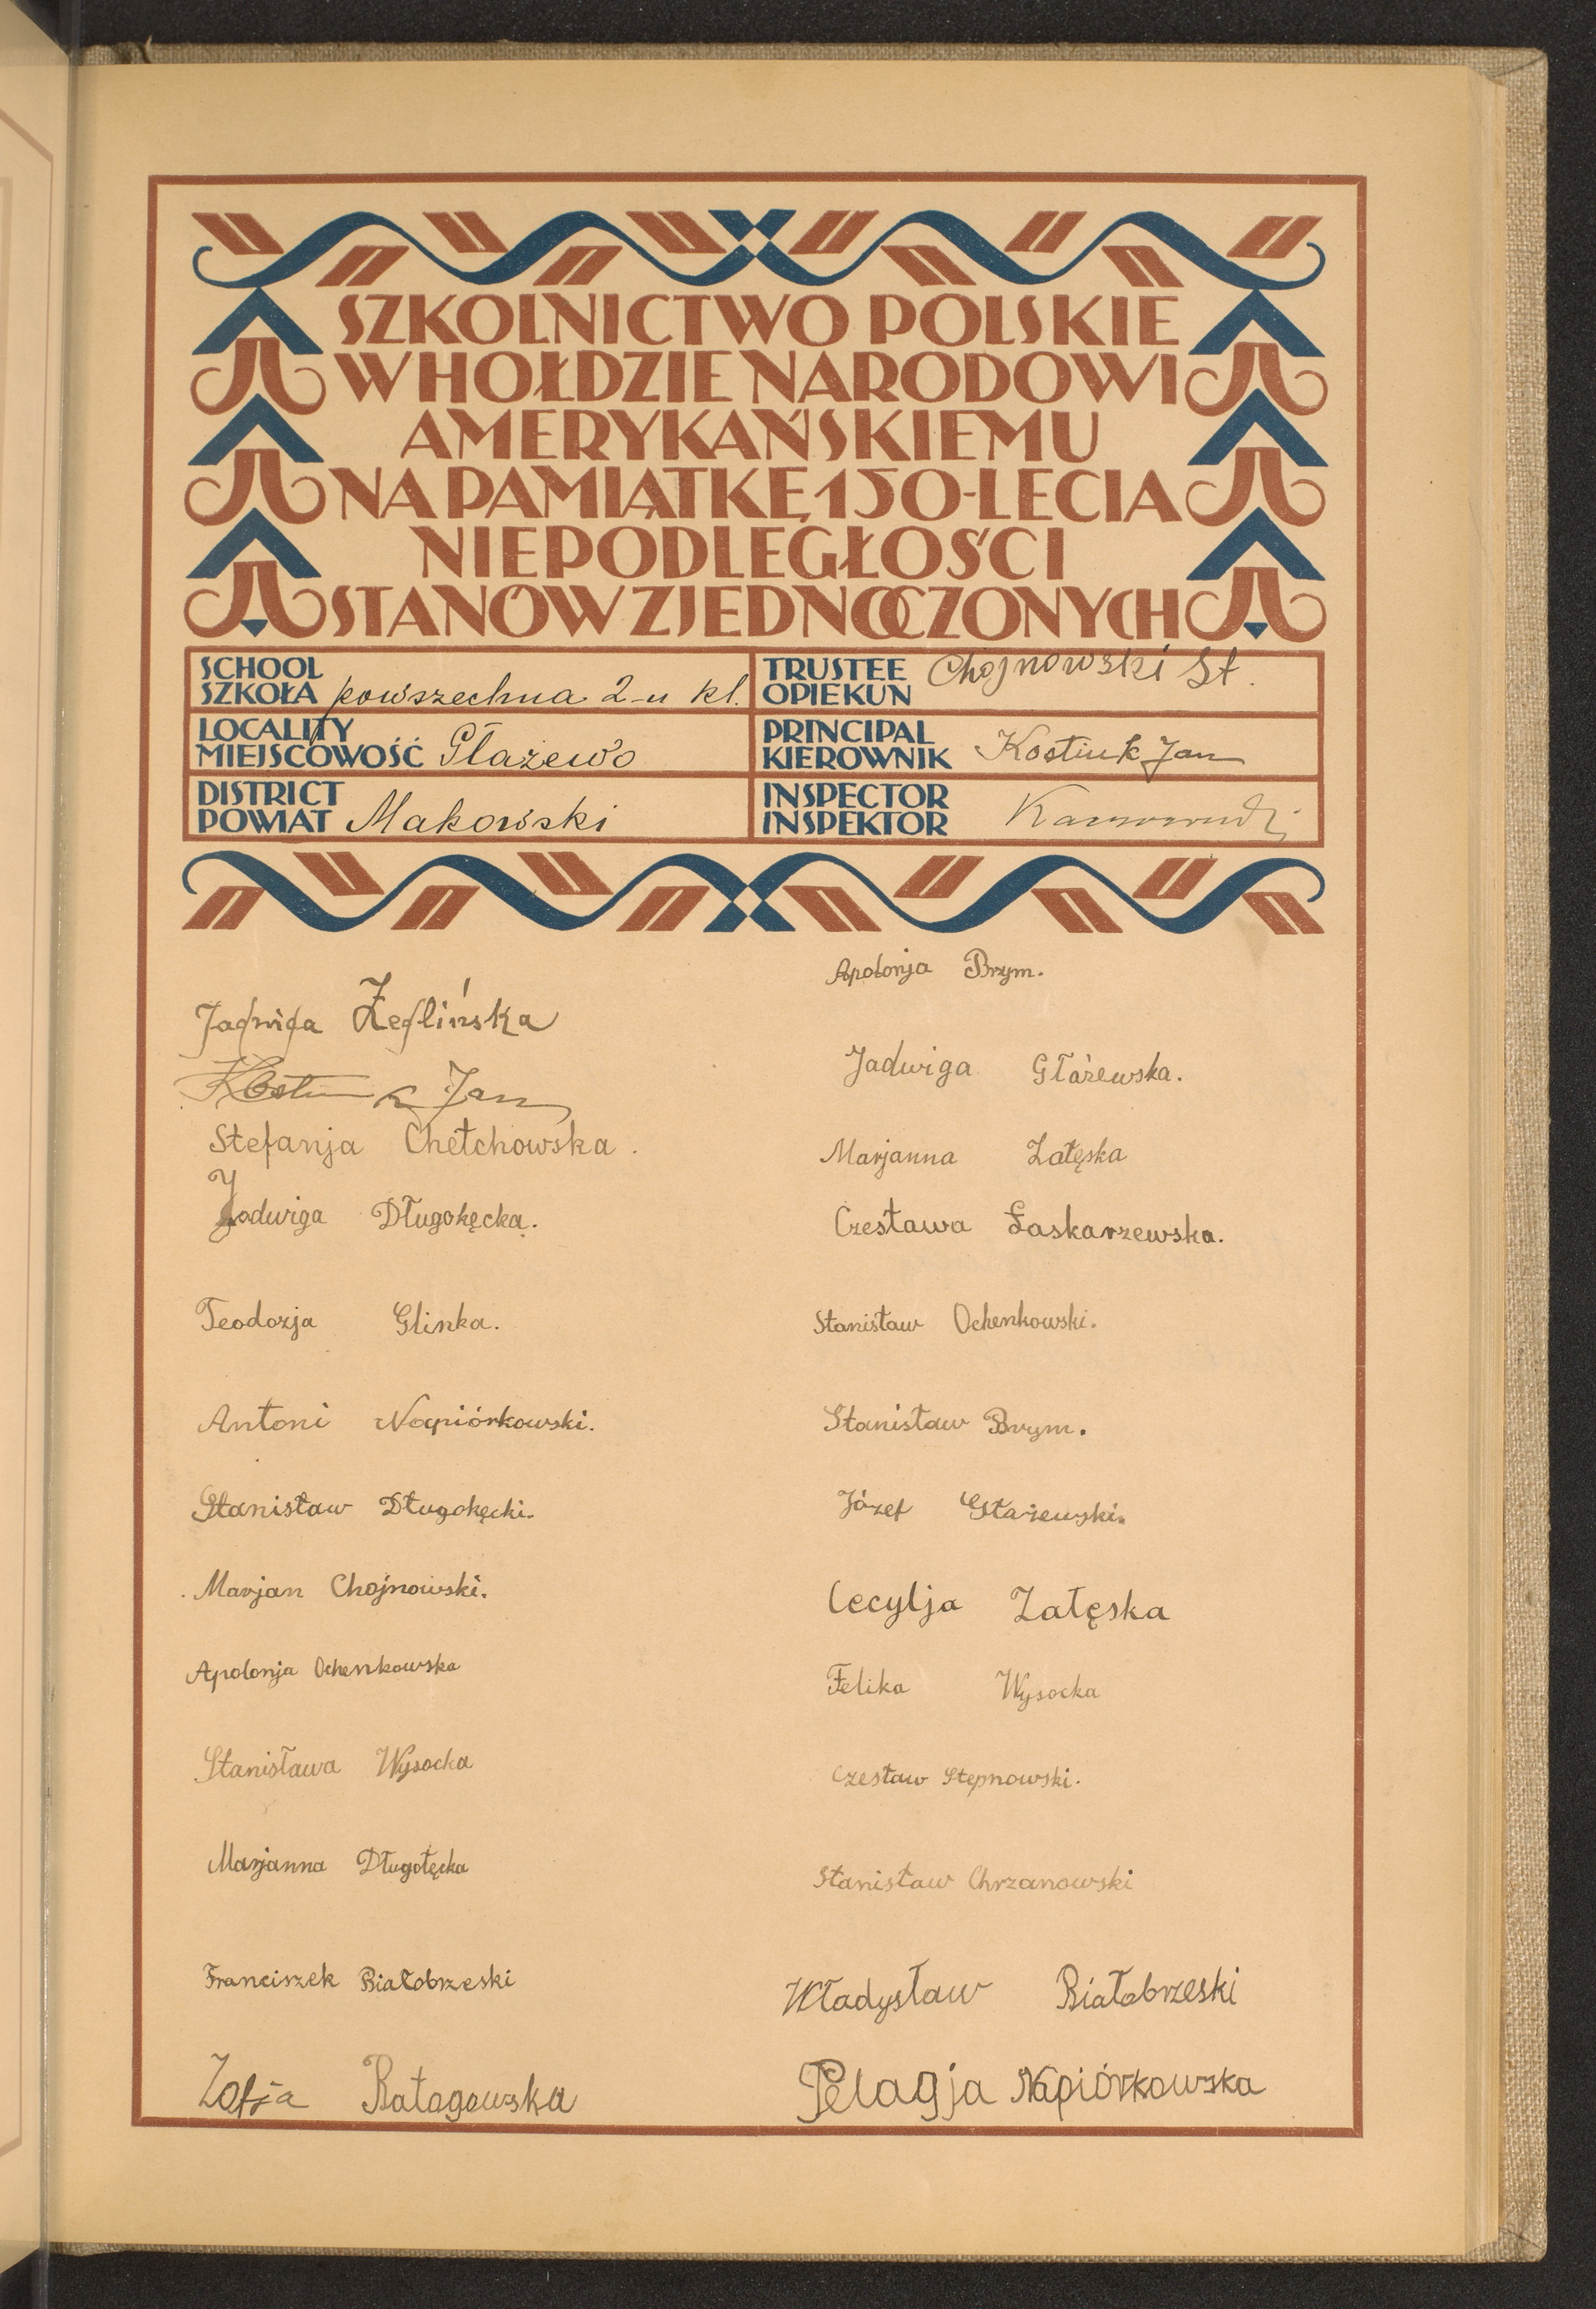 SZKOLNICTWO POLSKIE
W HOŁDZIE NARODOWI
AMERYKAŃSKIEMU
NA PAMIĄTKĘ 150-LECIA
NIEPODLEGŁOŚCI
STANÓW ZJEDNOCZONYCH
SCHOOL
SZKOŁA powszechna 2-u kl.
TRUSTEE
OPIEKUN Chojnowski St.
LOCALITY
MIEJSCOWOŚĆ Głażewo
PRINCIPAL
KIEROWNIK Kostiuk Jan
DISTRICT
POWIAT Makowski
INSPECTOR
INSPEKTOR
Jadwiga Żeglińska
Kostiuk Jan
Stefanja Chełchowska.
Jadwiga Długokęcka.
Teodozja Glinka.
Antoni Napiórkowski.
Stanisław Długokęcki.
Marjan Chojnowski.
Apolonja Ochenkowska
Stanisława Wysocka
Marjanna Długołęcka
Franciszek Białobrzeski
Zofja Ratagowska
Apolonja Brym.
Jadwiga Głażewska.
Marjanna Załęska
Czesława Łaskarzewska.
Stanisław Ochenkowski.
Stanisław Brym.
Józef Głażewski.
Cecylja Załęska
Felika Wysocka
Czesław Stępnowski.
Stanisław Chrzanowski
Władysław Białobrzeski
Pelagja Napiórkowska